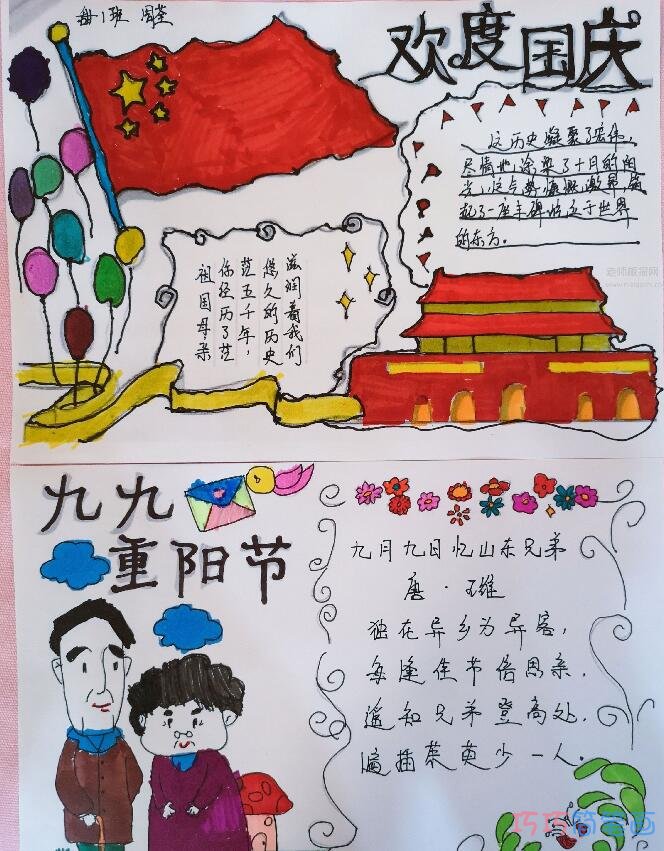 欢度国庆
这历史凝聚了宏伟，
尽情地渲染了十月的阳
光，这气势慷慨激昂，筑
起了一座丰碑屹立于世界
的东方。
祖国母亲
你经历了茫
茫五千年，
悠久的历史
滋润着我们
老师板报网
九九
重阳节
九月九日忆山东兄弟
唐·王维
独在异乡为异客，
每逢佳节倍思亲.
遥知兄弟登高处.
遍插茱萸少一人.
巧巧简笔画